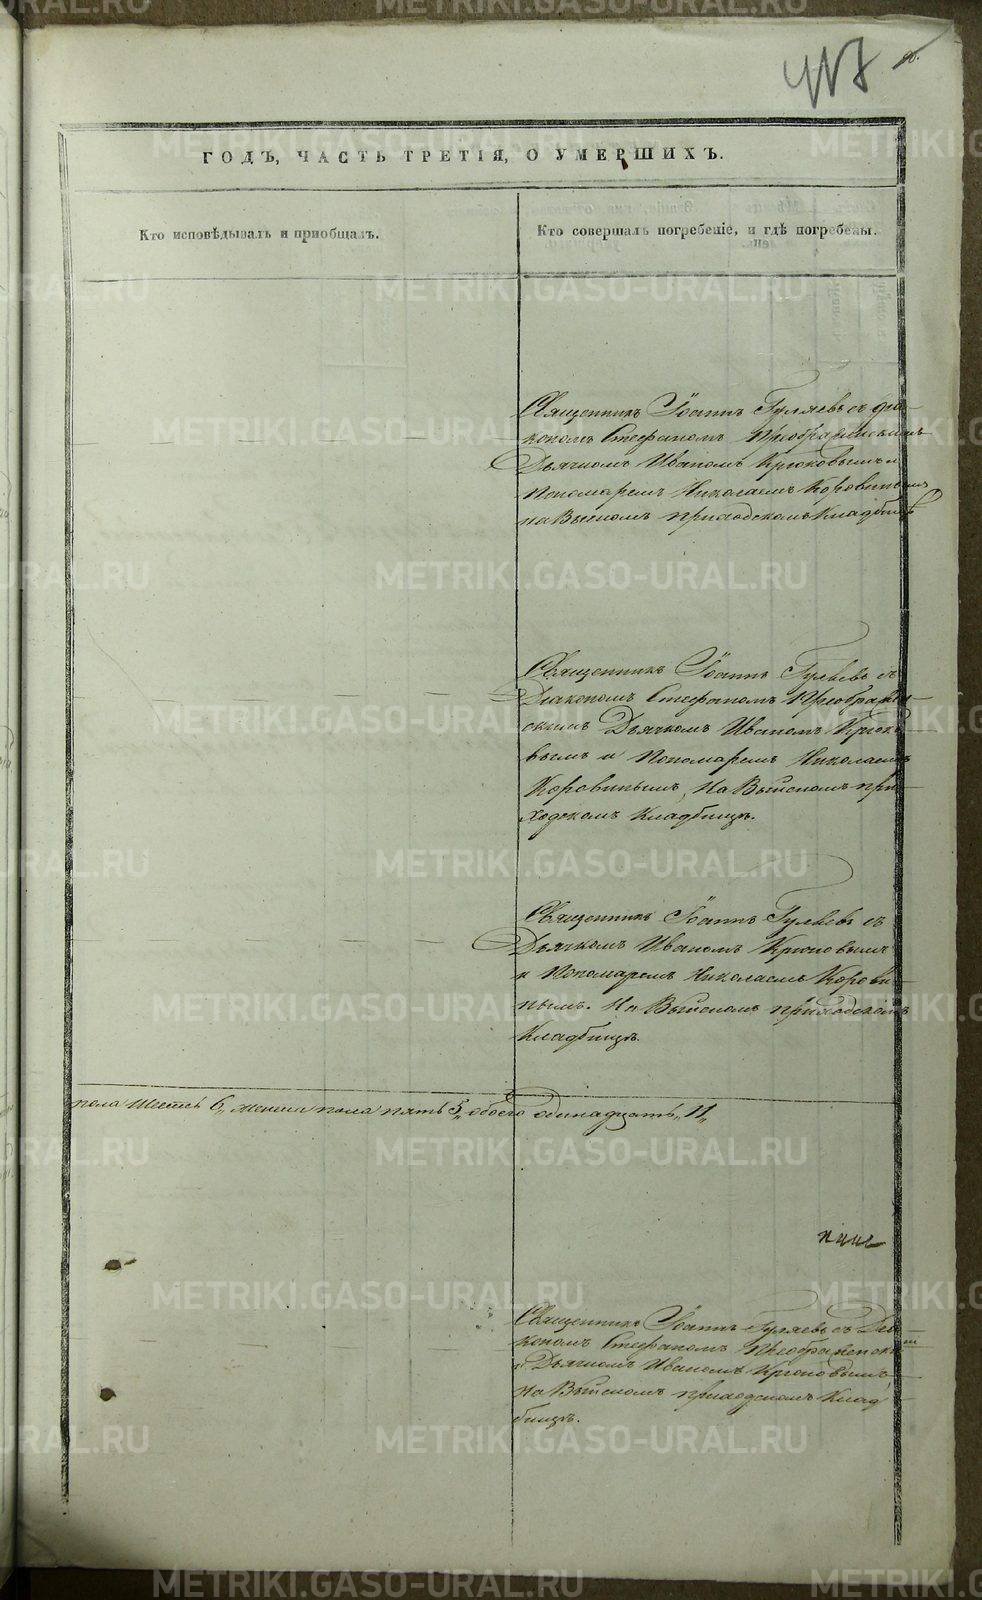 417
ГОДЪ, ЧАСТЬ ТРЕТІЯ, О УМЕРШИХЪ.
Кто исповѣдывалъ и пріобщалъ.
Кто совершалъ погребеніе, и гдѣ погребены.
Священникъ Іоаннъ Гуляевъ съ діа-
кономъ Стефаномъ Преображенскимъ
Дьячкомъ Иваномъ Крюковымъ и
Пономаремъ Николаемъ Коровинымъ
на Выйскомъ приходскомъ Кладбищѣ
Священникъ Іоаннъ Гуляевъ съ
Діакономъ Стефаномъ Преображен-
скимъ Дьячкомъ Иваномъ Крюко-
вымъ и Пономаремъ Николаемъ
Коровинымъ, На Выйскомъ при-
ходскомъ Кладбищѣ.
Священникъ Іоаннъ Гуляевъ съ
Дьячкомъ Иваномъ Крюковымъ
и Пономаремъ Николаемъ Корови-
нымъ. На Выйскомъ приходскомъ
Кладбищѣ.
пола Шесть 6, женска пола пять 5, обоего одинадцать, 11,
Священникъ Іоаннъ Гуляевъ съ Діа-
кономъ Стефаномъ Преображенским
и Дьячкомъ Иваномъ Крюковымъ
На Выйскомъ приходскомъ Клад
бищѣ.
METRIKI.GASO-URAL.RU